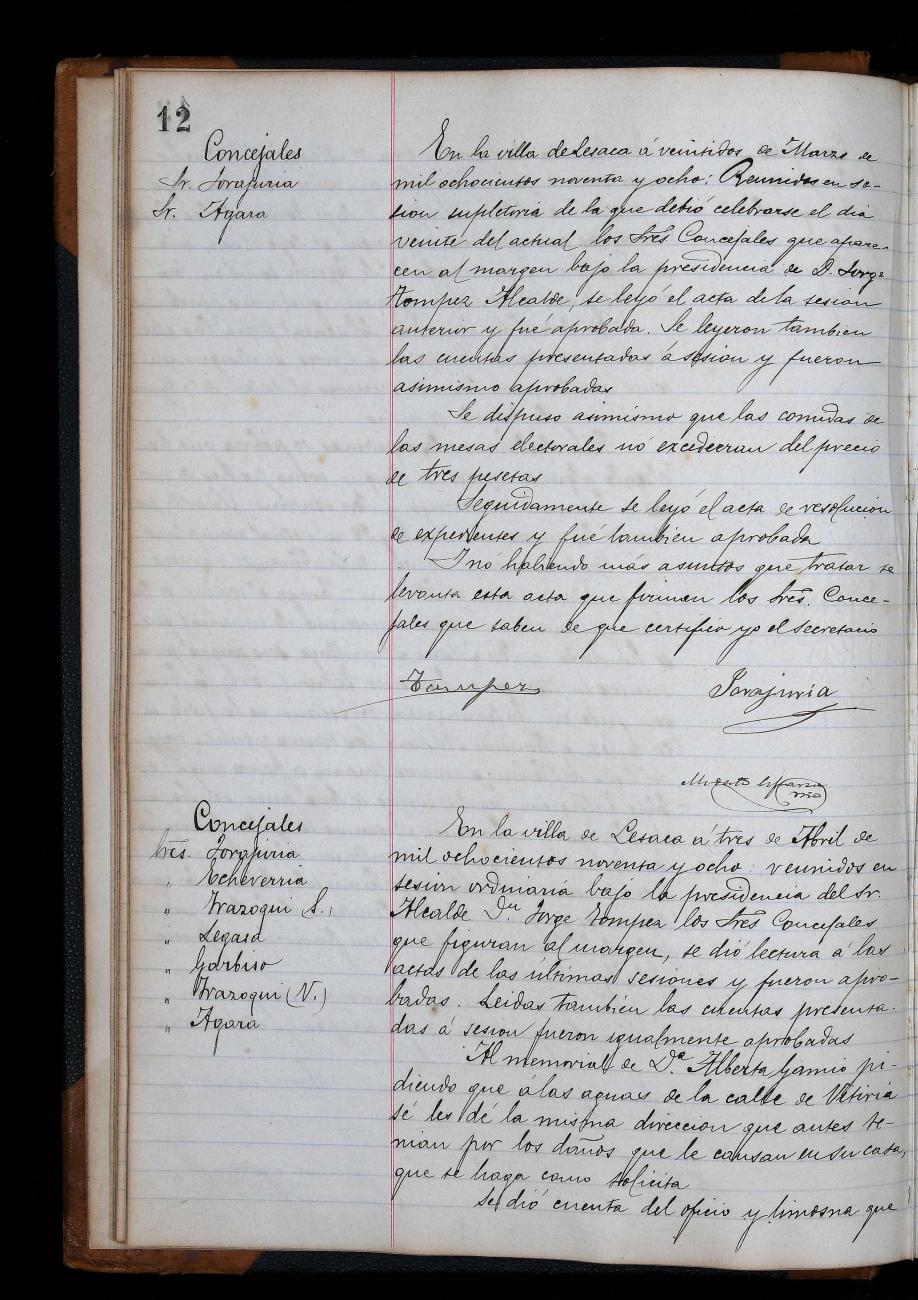 12
Concejales
Sr. Jorajuria
Sr. Agara
En la villa de Lesaca á veintidos de Marzo de
mil ochocientos noventa y ocho; Reunidos en se-
sion supletoria de la que debió celebrarse el dia
veinte del actual los Sres Concejales que apare-
cen al margen bajo la presidencia de D. Jorge
Tompez Alcalde, se leyó el acta de la sesion
anterior y fué aprobada. Se leyeron tambien
las cuentas presentadas á sesion y fueron
asimismo aprobadas
Se dispuso asimismo que las comidas de
las mesas electorales nó excedieran del precio
de tres pesetas
Seguidamente se leyó el acta de resolucion
de expedientes y fué tambien aprobada
I nó habiendo más asuntos que tratar se
levanta esta acta que firman los Sres. Conce-
jales que saben de que certifico yo el Secretario
Tompez
Jorajuria
Modesto
Concejales
Sres. Jorajuria
" Echeverria
" Irazoqui S.,
" Legasa
" Garbiso
" Irazoqui (V.)
" Agara
En la villa de Lesaca á tres de Abril de
mil ochocientos noventa y ocho: reunidos en
sesion ordinaria bajo la presidencia del Sr.
Alcalde Dn Jorge Tompez los Sres Concejales
que figuran al margen, se dió lectura á las
actas de las últimas sesiones y fueron apro-
badas. Leidas tambien las cuentas presenta-
das á sesion fueron igualmente aprobadas
Al memorial de Da Alberta Gamio pi-
diendo que á las aguas de la calle de Vitiria
sé les dé la misma direccion que antes te-
nian por los daños que le causan en su casa,
que se haga como solicita
Se dió cuenta del oficio y limosna que